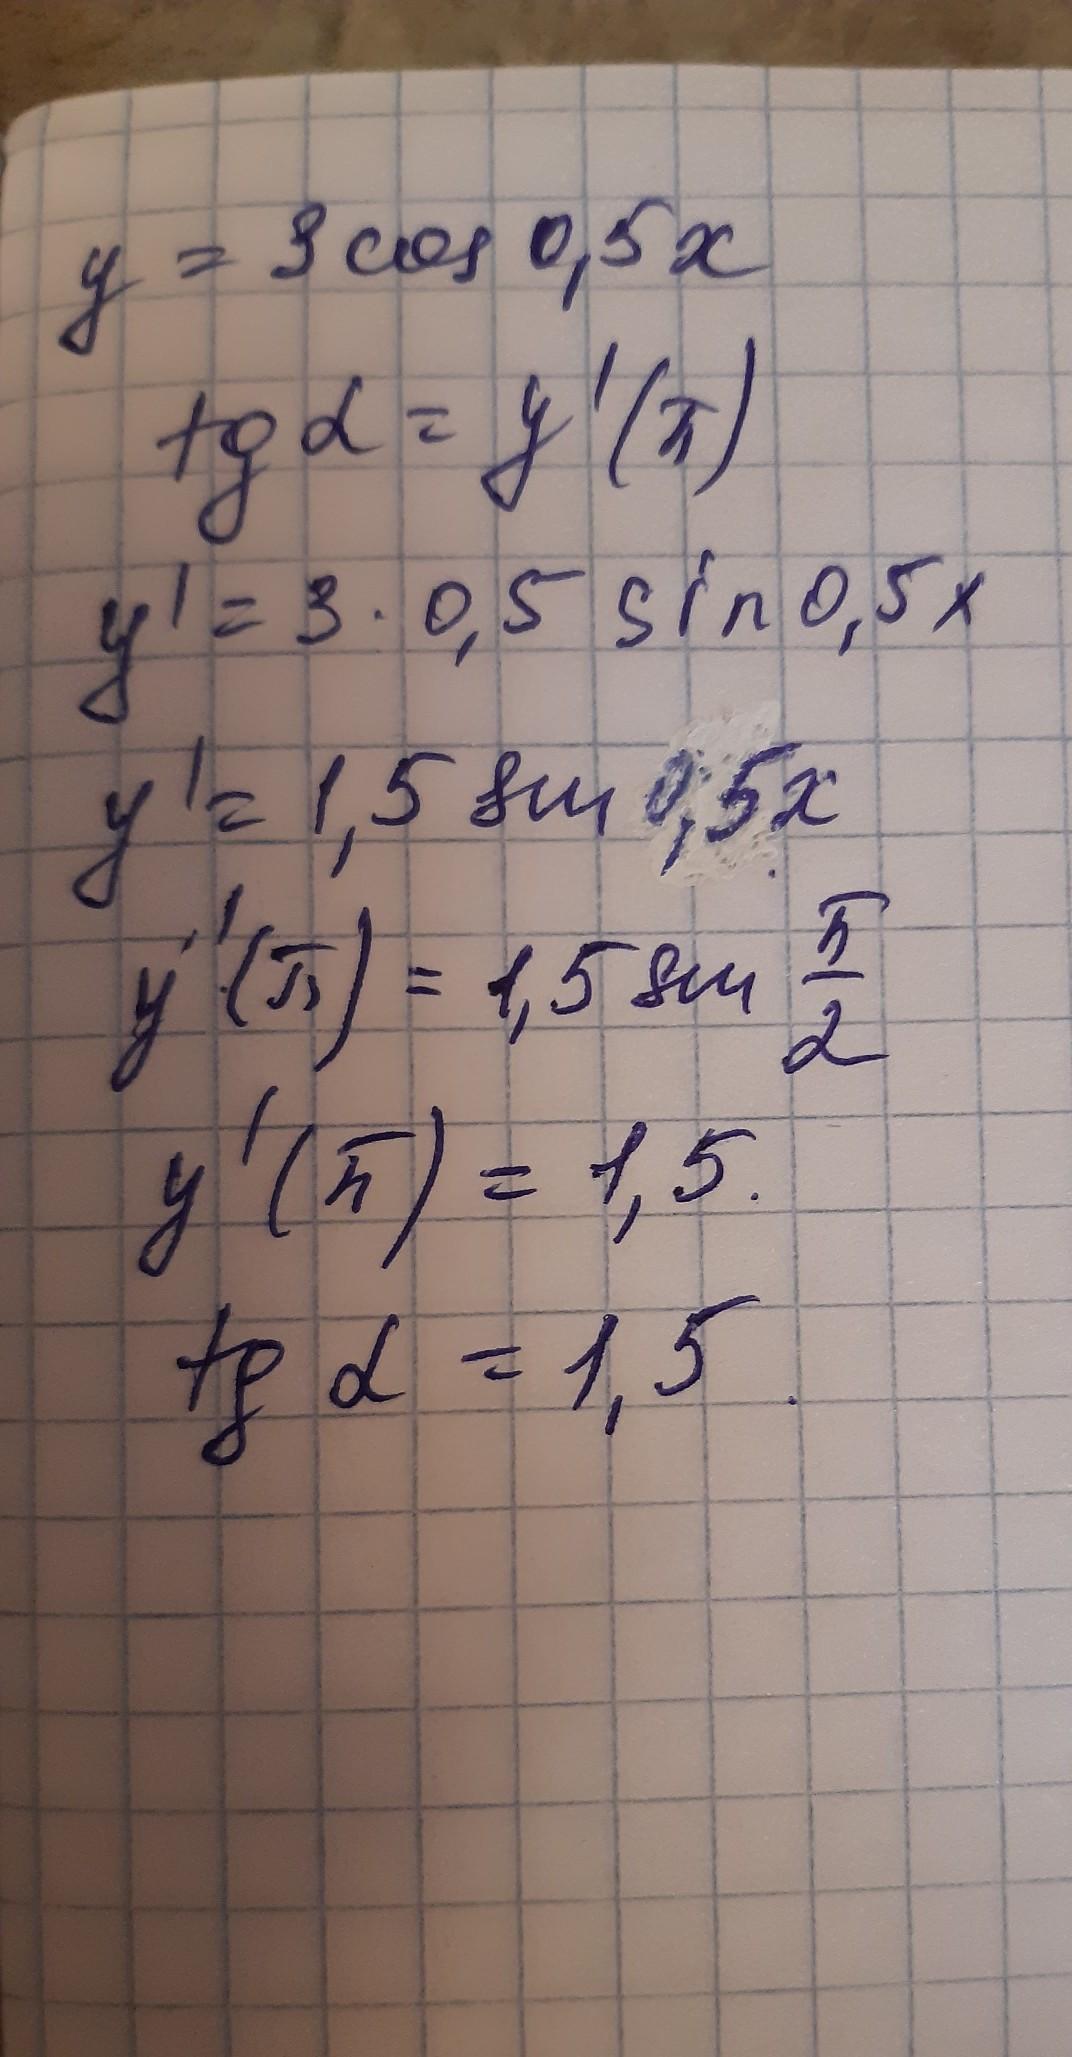 y = 3 cos 0,5x
tg α = y'(π)
y' = 3 · 0,5 sin 0,5x
y' = 1,5 sin 0,5x
y'(π) = 1,5 sin π/2
y'(π) = 1,5.
tg α = 1,5.